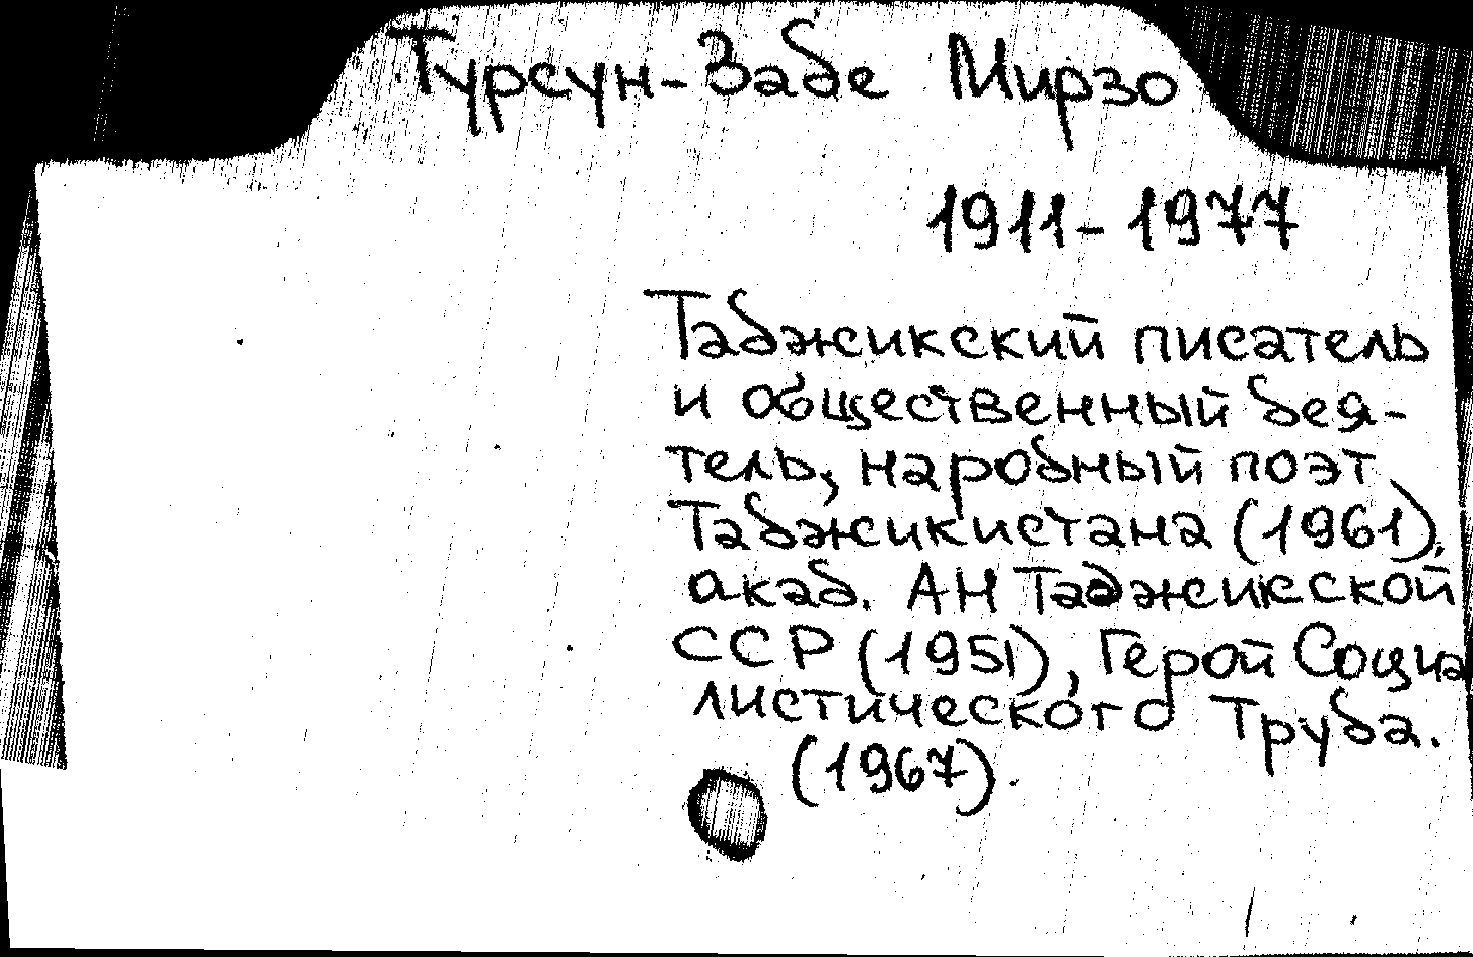 Турсун-Заде Мирзо
1911-1977
Таджикский писатель
и общественный дея-
тель, народный поэт
Таджикистана (1961),
акад. АН Таджикской
ССР (1951), Герой Социа
листического Труда.
(1967).